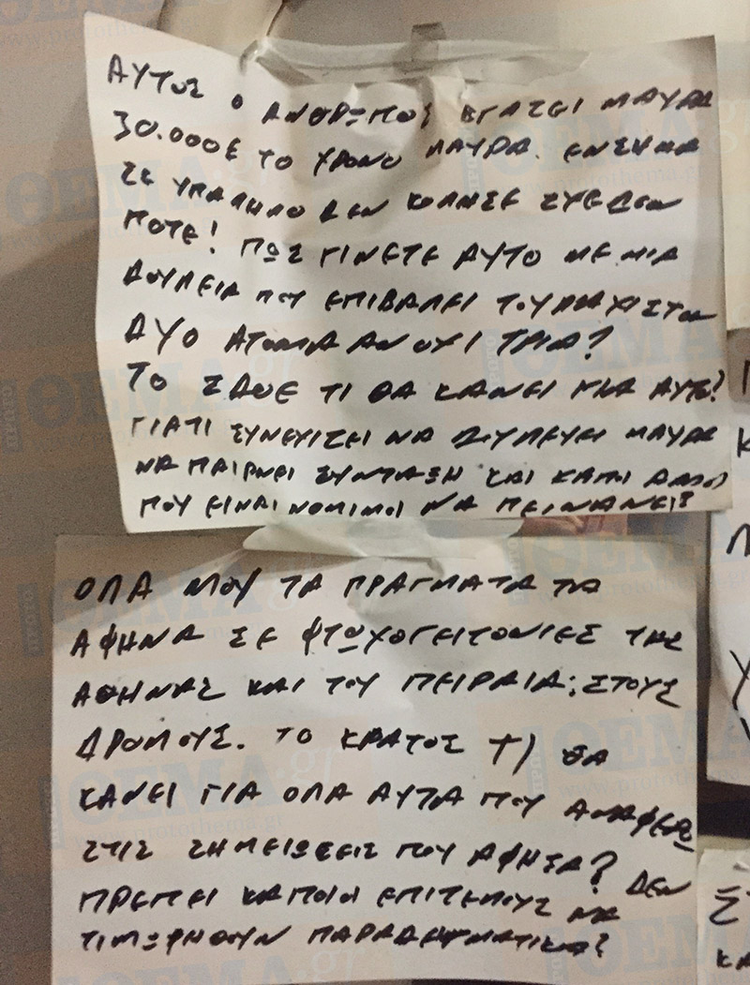 ΑΥΤΟΣ Ο ΑΝΘΡΩΠΟΣ ΒΓΑΖΕΙ ΜΑΥΡΑ
30.000€ ΤΟ ΧΡΟΝΟ ΜΑΥΡΑ. ΕΝΣΗΜΑ
ΣΕ ΥΠΑΛΗΛΟ ΔΕΝ ΚΟΛΗΣΕ ΣΧΕΔΩΝ
ΠΟΤΕ! ΠΩΣ ΓΙΝΕΤΕ ΑΥΤΟ ΜΕ ΜΙΑ
ΔΟΥΛΕΙΑ ΠΟΥ ΕΠΙΒΑΛΕΙ ΤΟΥΛΑΧΙΣΤΟΝ
ΔΥΟ ΑΤΟΜΑ ΑΝ ΟΧΙ ΤΡΙΑ?
ΤΟ ΣΔΟΕ ΤΙ ΘΑ ΚΑΝΕΙ ΓΙΑ ΑΥΤΟ?
ΓΙΑΤΙ ΣΥΝΕΧΙΖΕΙ ΝΑ ΔΟΥΛΕΥΕΙ ΜΑΥΡΑ
ΝΑ ΠΑΙΡΝΕΙ ΣΥΝΤΑΞΗ ΚΑΙ ΚΑΠΙ ΑΛΛΟΙ
ΠΟΥ ΕΙΝΑΙ ΝΟΜΙΜΟΙ ΝΑ ΠΕΙΝΑΝΕ?
ΟΛΑ ΜΟΥ ΤΑ ΠΡΑΓΜΑΤΑ ΤΑ
ΑΦΗΝΑ ΣΕ ΦΤΩΧΟΓΕΙΤΟΝΙΕΣ ΤΗΣ
ΑΘΗΝΑΣ ΚΑΙ ΤΟΥ ΠΕΙΡΑΙΑ; ΣΤΟΥΣ
ΔΡΟΜΟΥΣ. ΤΟ ΚΡΑΤΟΣ ΤΙ ΘΑ
ΚΑΝΕΙ ΓΙΑ ΟΛΑ ΑΥΤΑ ΠΟΥ ΑΝΑΦΕΡΩ
ΣΤΙΣ ΣΗΜΕΙΩΣΕΙΣ ΠΟΥ ΑΦΗΣΑ? ΔΕΝ
ΠΡΕΠΕΙ ΚΑΠΟΙΟΙ ΕΠΙΤΕΛΟΥΣ ΝΑ
ΤΙΜΩΡΗΘΟΥΝ ΠΑΡΑΔΕΙΓΜΑΤΙΚΑ?